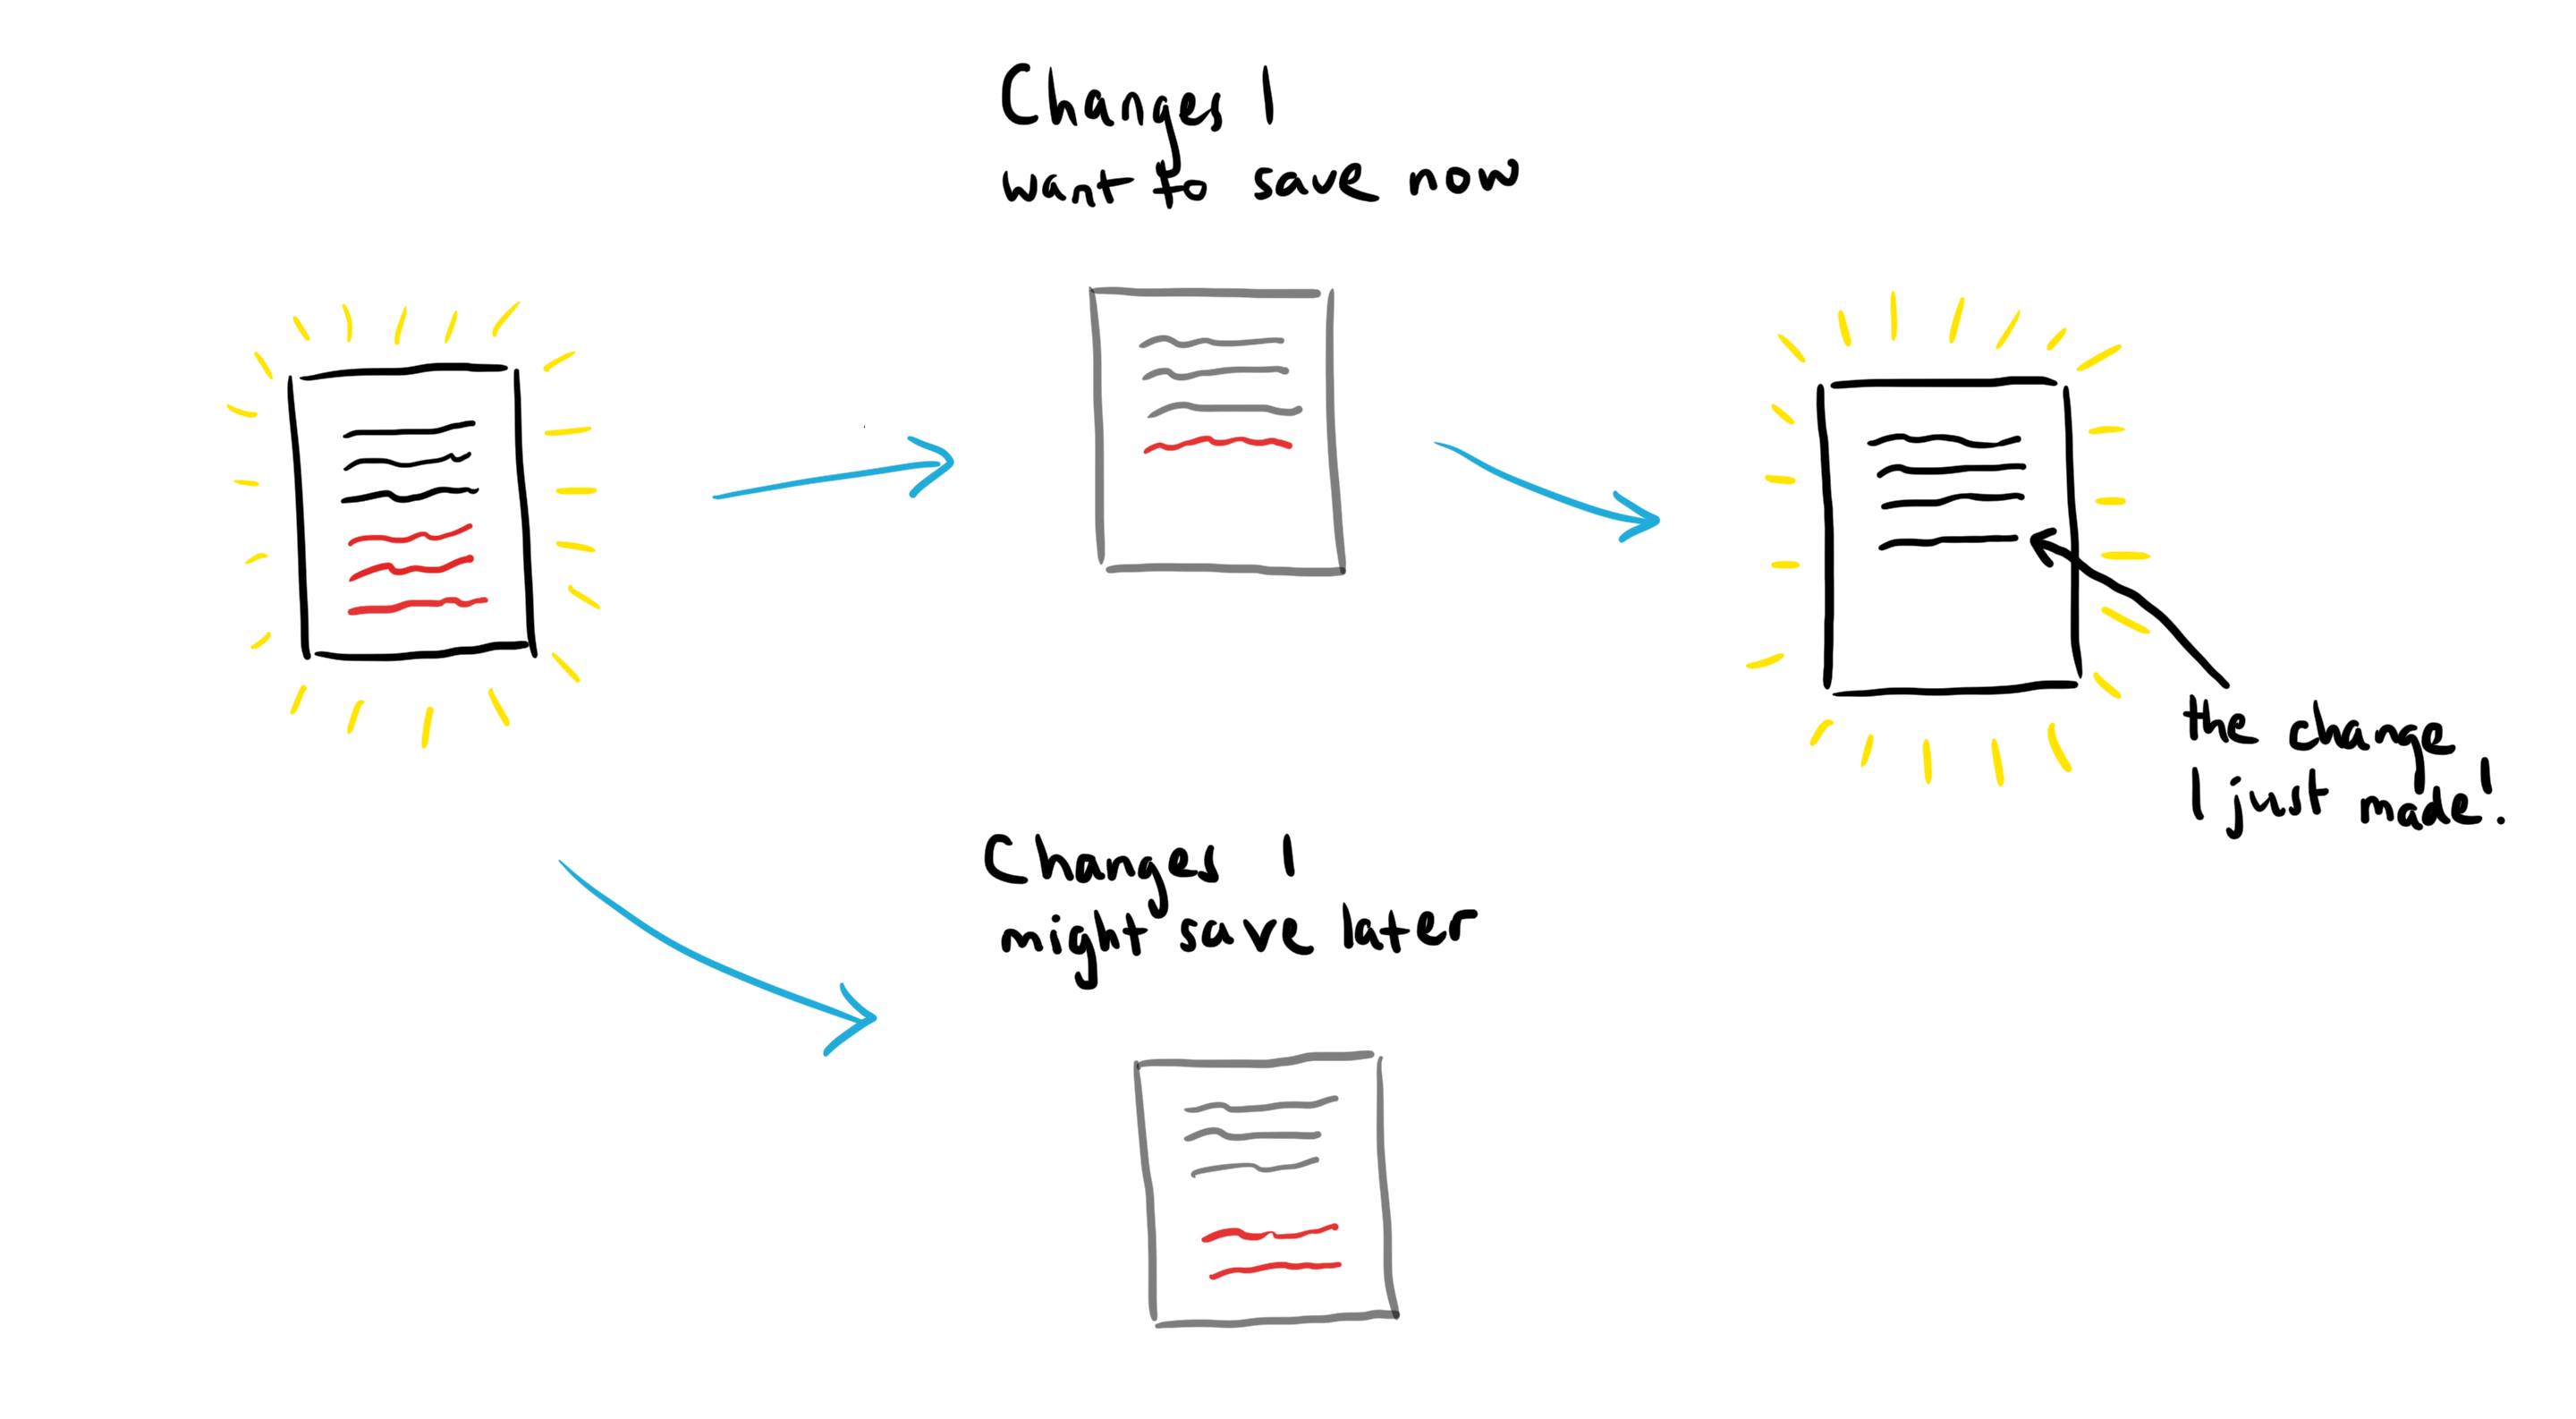 Changes I
want to save now
the change
I just made!
Changes I
might save later